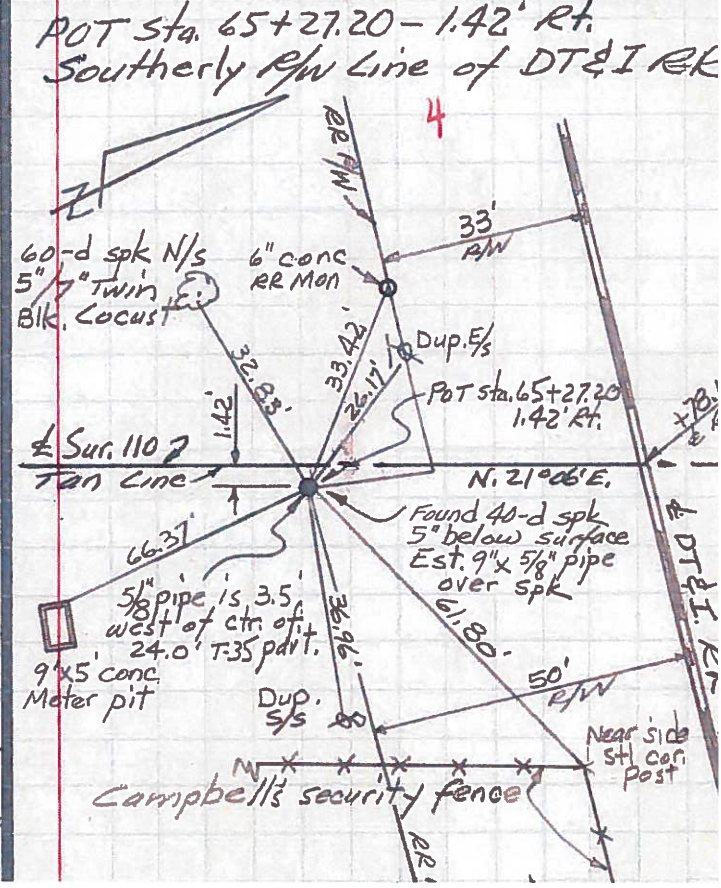 POT Sta. 65+27.20 - 1.42' Rt.
Southerly R/W Line of DT&I RR
4
RR R/W
33'
R/W
60-d spk N/s
5" 7" Twin
Blk. Locust
6" conc
RR Mon
Dup. E/s
32.83'
33.42'
26.17'
1.42'
POT Sta. 65+27.20
1.42' Rt.
+78.
℄ Sur. 110
Tan Line
N. 21°06' E.
Found 40-d spk
5" below surface
Est. 9" x 5/8" pipe
over spk
66.37'
5/8" pipe is 3.5'
west of ctr. of
24.0' T.35 pav't.
36.96'
61.80'
℄ DT&I. RR
9'x5' conc
Meter pit
Dup.
S/s
50'
R/W
Near side
stl cor.
post
Campbell's security fence
RR